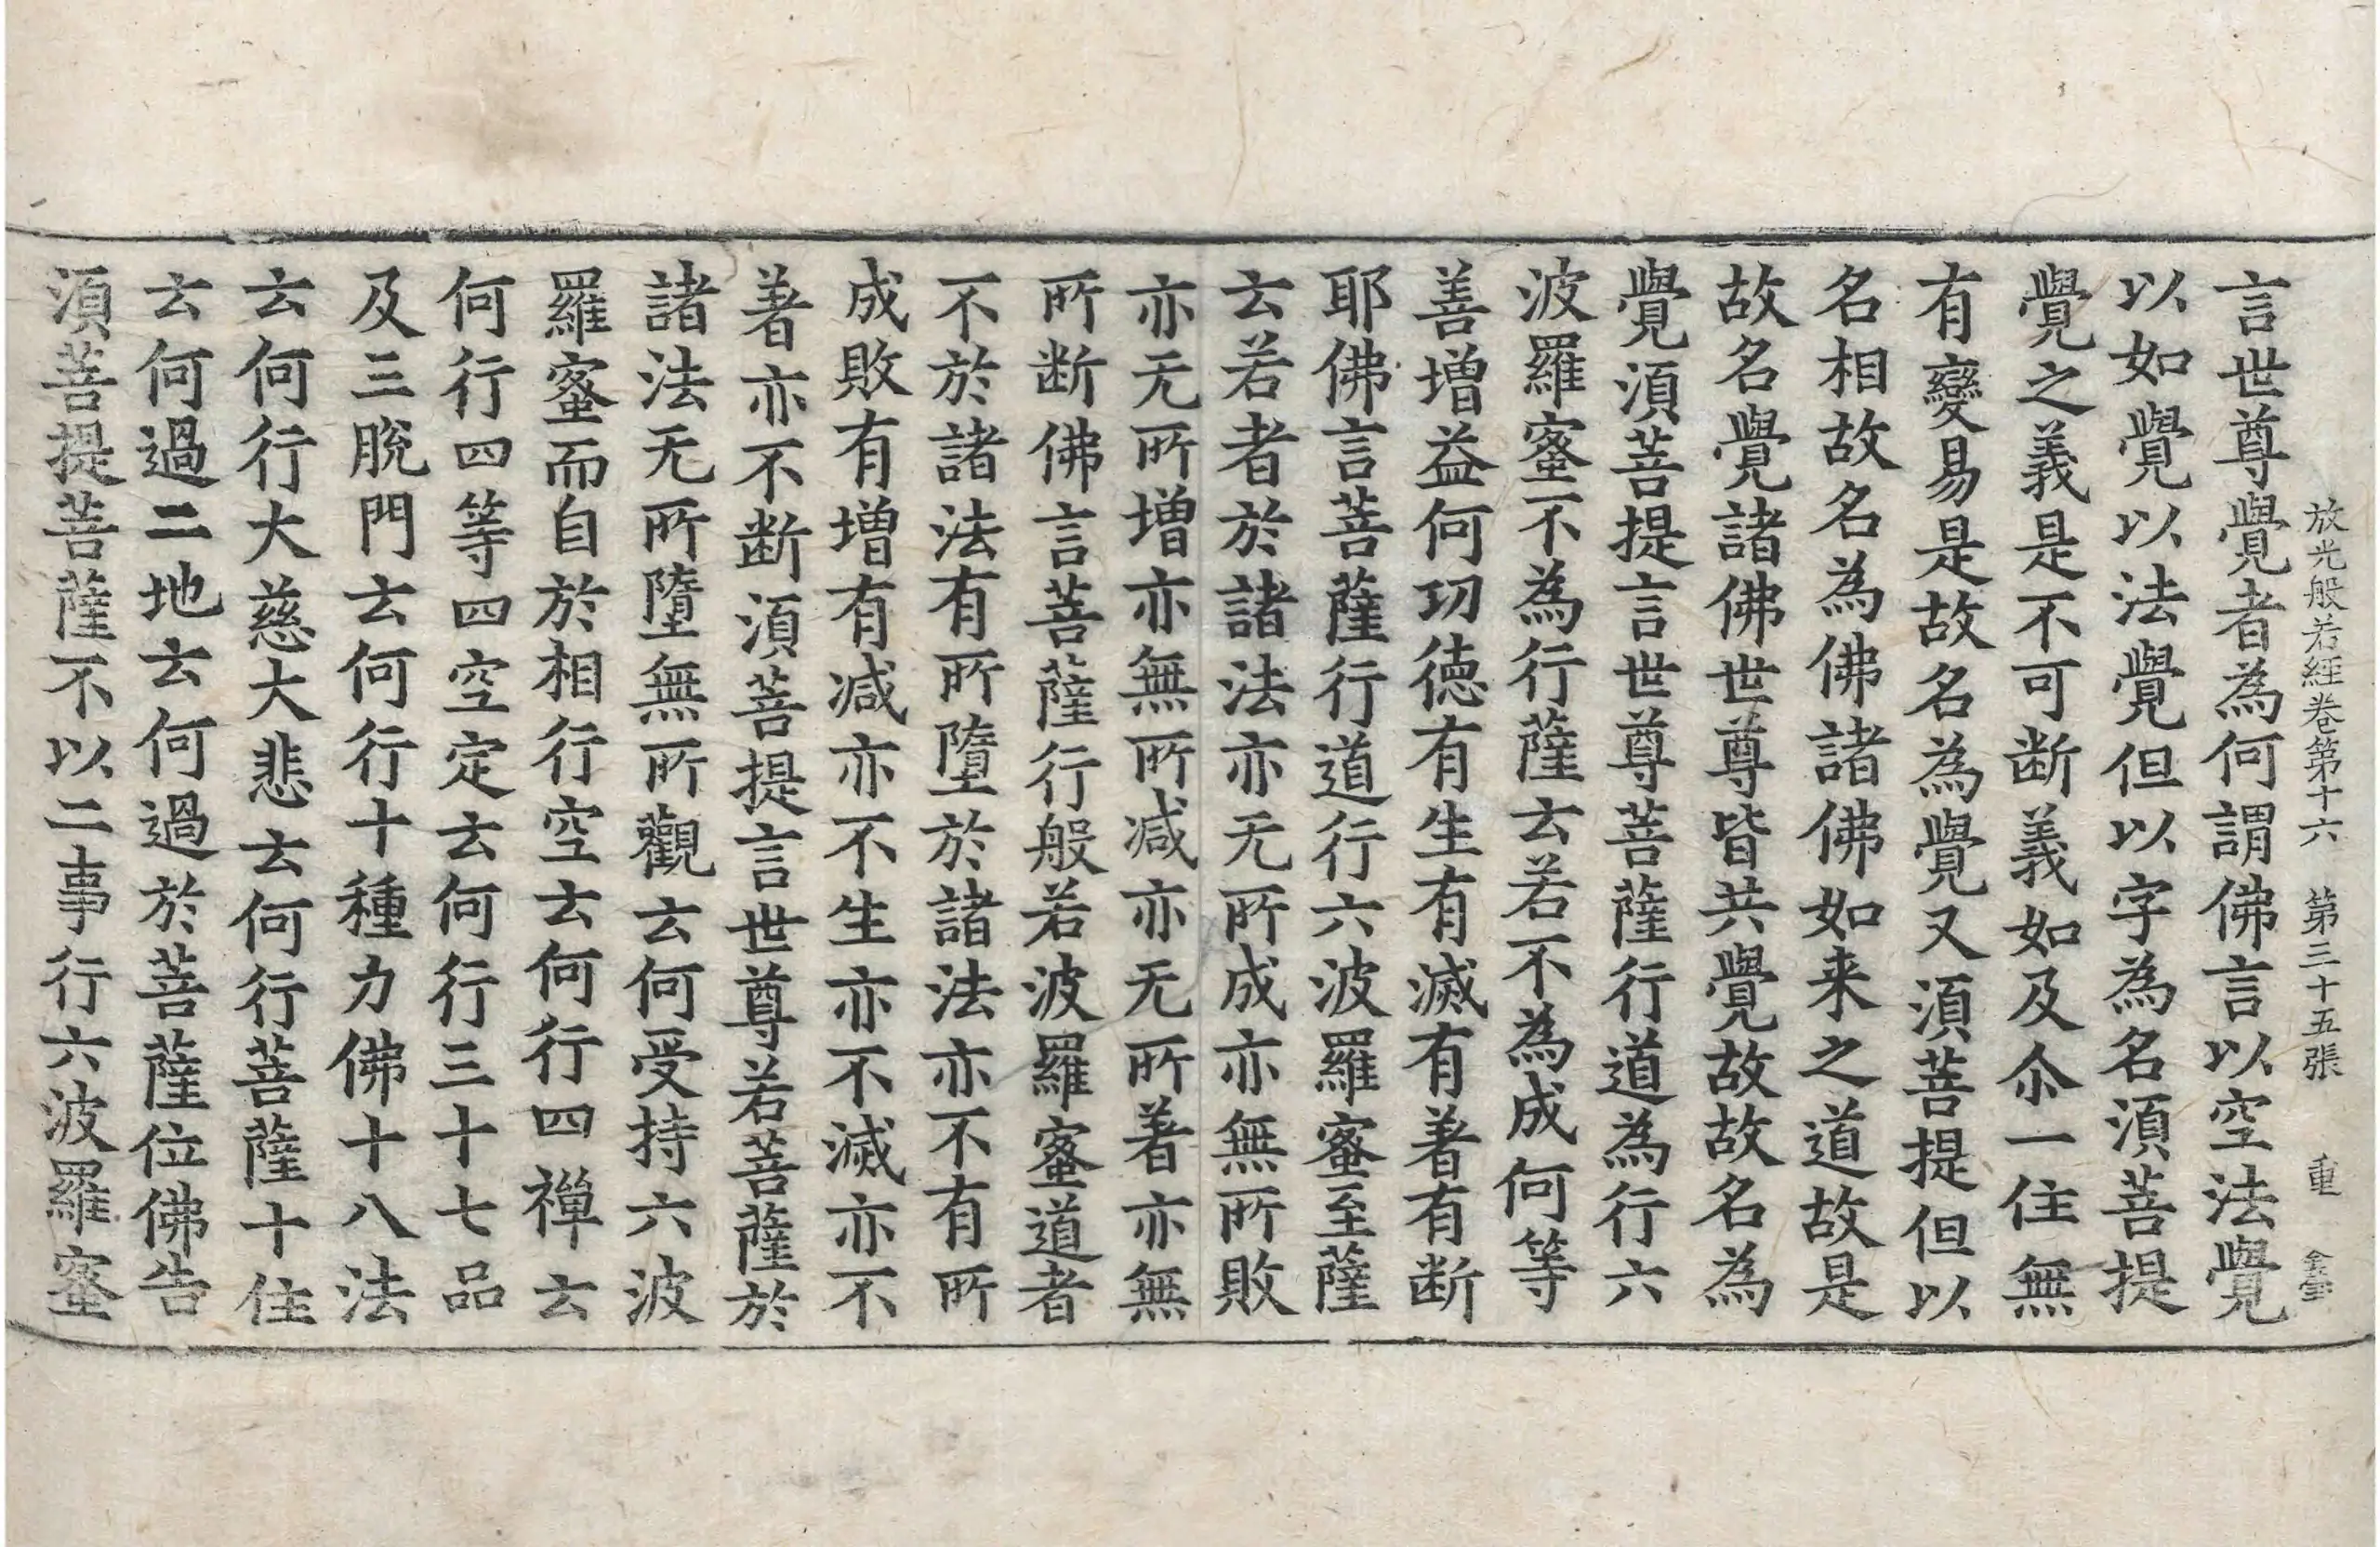 放光般若經卷第十六 第三十五張 重
言世尊覺者為何謂佛言以空法覺
以如覺以法覺但以字為名湏菩提
覺之義是不可断義如及尒一住無
有變易是故名為覺又湏菩提但以
名相故名為佛諸佛如来之道故是
故名覺諸佛世尊皆共覺故故名為
覺湏菩提言世尊菩薩行道為行六
波羅蜜不為行薩云若不為成何等
善增益何㓛德有生有滅有著有断
耶佛言菩薩行道行六波羅蜜至薩
云若者於諸法亦无所成亦無所敗
亦无所增亦無所减亦无所著亦無
所断佛言菩薩行般若波羅蜜道者
不於諸法有所墮於諸法亦不有所
成敗有增有减亦不生亦不滅亦不
著亦不断湏菩提言世尊若菩薩於
諸法无所墮無所觀云何受持六波
羅蜜而自於相行空云何行四禪云
何行四等四空定云何行三十七品
及三脫門云何行十種力佛十八法
云何行大慈大悲云何行菩薩十住
云何過二地云何過於菩薩位佛告
湏菩提菩薩不以二事行六波羅蜜